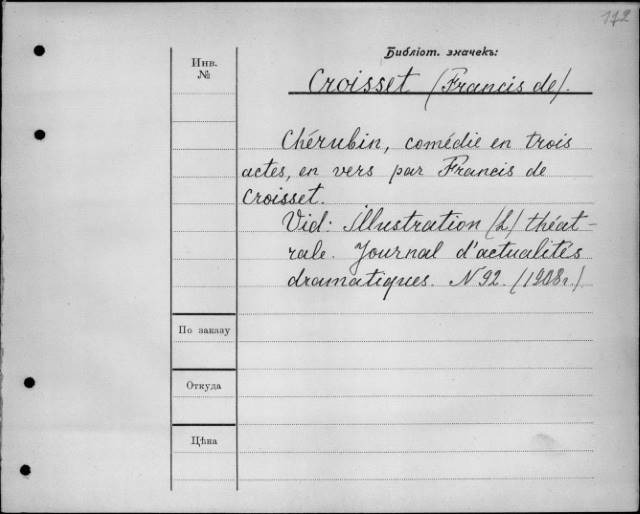 172
Библіот. значекъ:
Инв.
№
Croisset (Francis de).
Chérubin, comédie en trois
actes, en vers par Francis de
Croisset.
Vid: Illustration (L') théat-
rale. Journal d'actualités
dramatiques. N 92. (1908г.)
По заказу
Откуда
Цѣна